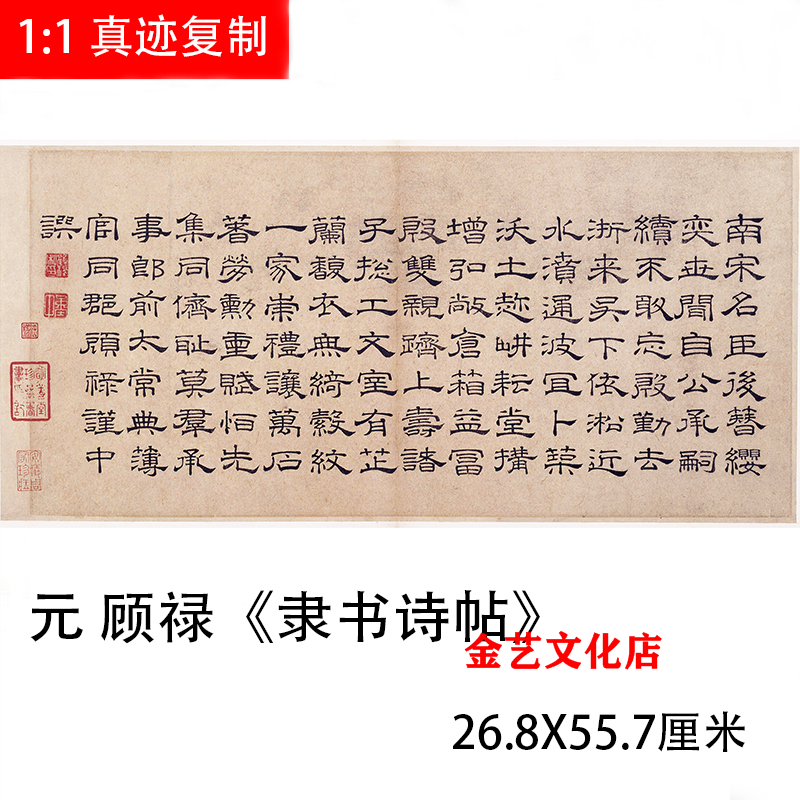 1:1 真迹复制
南宋名臣後簪纓
奕世聞自公承嗣
續不敢忘殷勤去
浙来吳下依淞近
水濆通波冝卜築
沃土趂畊耘堂搆
增弘敞倉箱益冨
殷雙親躋上壽諸
子揔工文室有芷
蘭馥衣無綺縠紋
一家崇禮讓萬石
著勞勳重賦恒先
集同儕恥莫羣承
事郎前太常典簿
官同郡顧祿謹中
譔
元 顾禄《隶书诗帖》
金艺文化店
26.8X55.7厘米